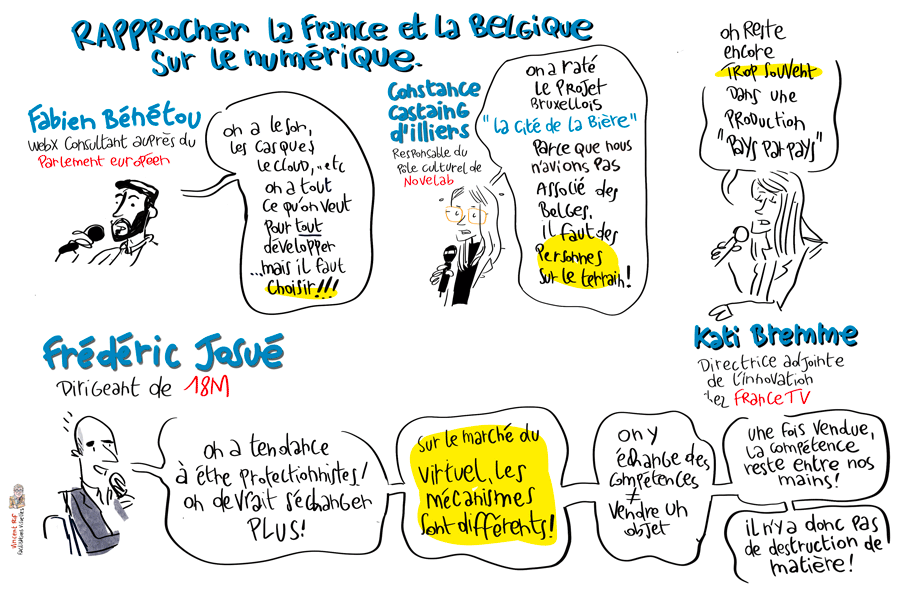 RAPPRocher la France et la Belgique
sur le numérique.
Fabien Bénétou
WebX Consultant auprès du
Parlement européen
on a le son,
les casques,
le cloud, ... etc
on a tout
ce qu'on veut
pour tout
développer
...mais il faut
choisir!!!
Constance
Castaing
d'illiers
Responsable du
Pôle culturel de
Novelab
on a raté
le projet
Bruxellois
"La cité de la Bière"
parce que nous
n'avions pas
Associé des
Belges.
il faut des
personnes
sur le terrain!
on reste
encore
trop souvent
Dans une
production
"Pays par pays"
Kati Bremme
Directrice adjointe
de l'innovation
chez FranceTV
Frédéric Josué
Dirigeant de 18M
on a tendance
à être protectionnistes!
on devrait s'échanger
PLUS!
sur le marché du
virtuel, les
mécanismes
sont différents!
on y
échange des
compétences
≠
vendre un
objet
une fois vendue,
la compétence
reste entre nos
mains!
il n'y a donc pas
de destruction de
matière!
Vincent Rif